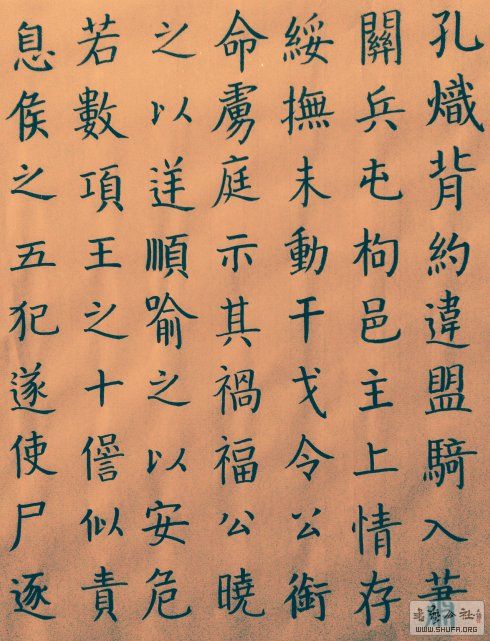 孔熾背約違盟騎入
關兵屯枸邑主上情存
綏撫未動干戈令公銜
命虜庭示其禍福公曉
之以逆順喻之以安危
若數項王之十僁似責
息侯之五犯遂使尸逐
WWW.SHUFA.ORG